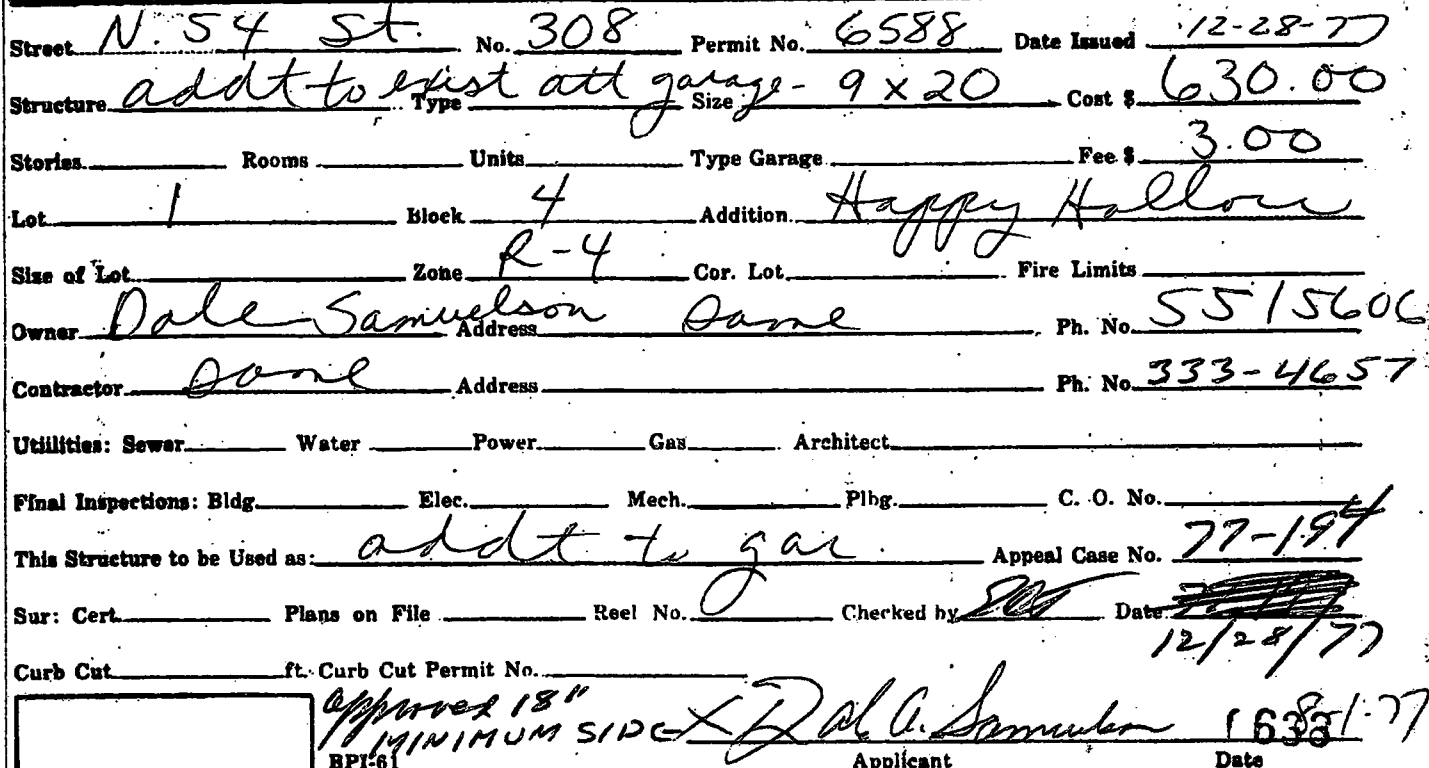 Street N. 54 St. No. 308 Permit No. 6588 Date Issued 12-28-77
Structure addt to exist att garage - Type Size 9 x 20 Cost $ 630.00
Stories Rooms Units Type Garage Fee $ 3.00
Lot 1 Block 4 Addition Happy Hollow
Size of Lot Zone R-4 Cor. Lot Fire Limits
Owner Dale Samuelson Address Same Ph. No. 551 5606
Contractor Same Address Ph. No. 333-4657
Utilities: Sewer Water Power Gas Architect
Final Inspections: Bldg. Elec. Mech. Plbg. C. O. No.
This Structure to be Used as: addt to gar. Appeal Case No. 77-194
Sur: Cert. Plans on File Reel No. Checked by Date
12/28/77
Curb Cut ft. Curb Cut Permit No.
approved 18"
MINIMUM SIDE X Dale A. Samuelson
BPI-61 Applicant Date